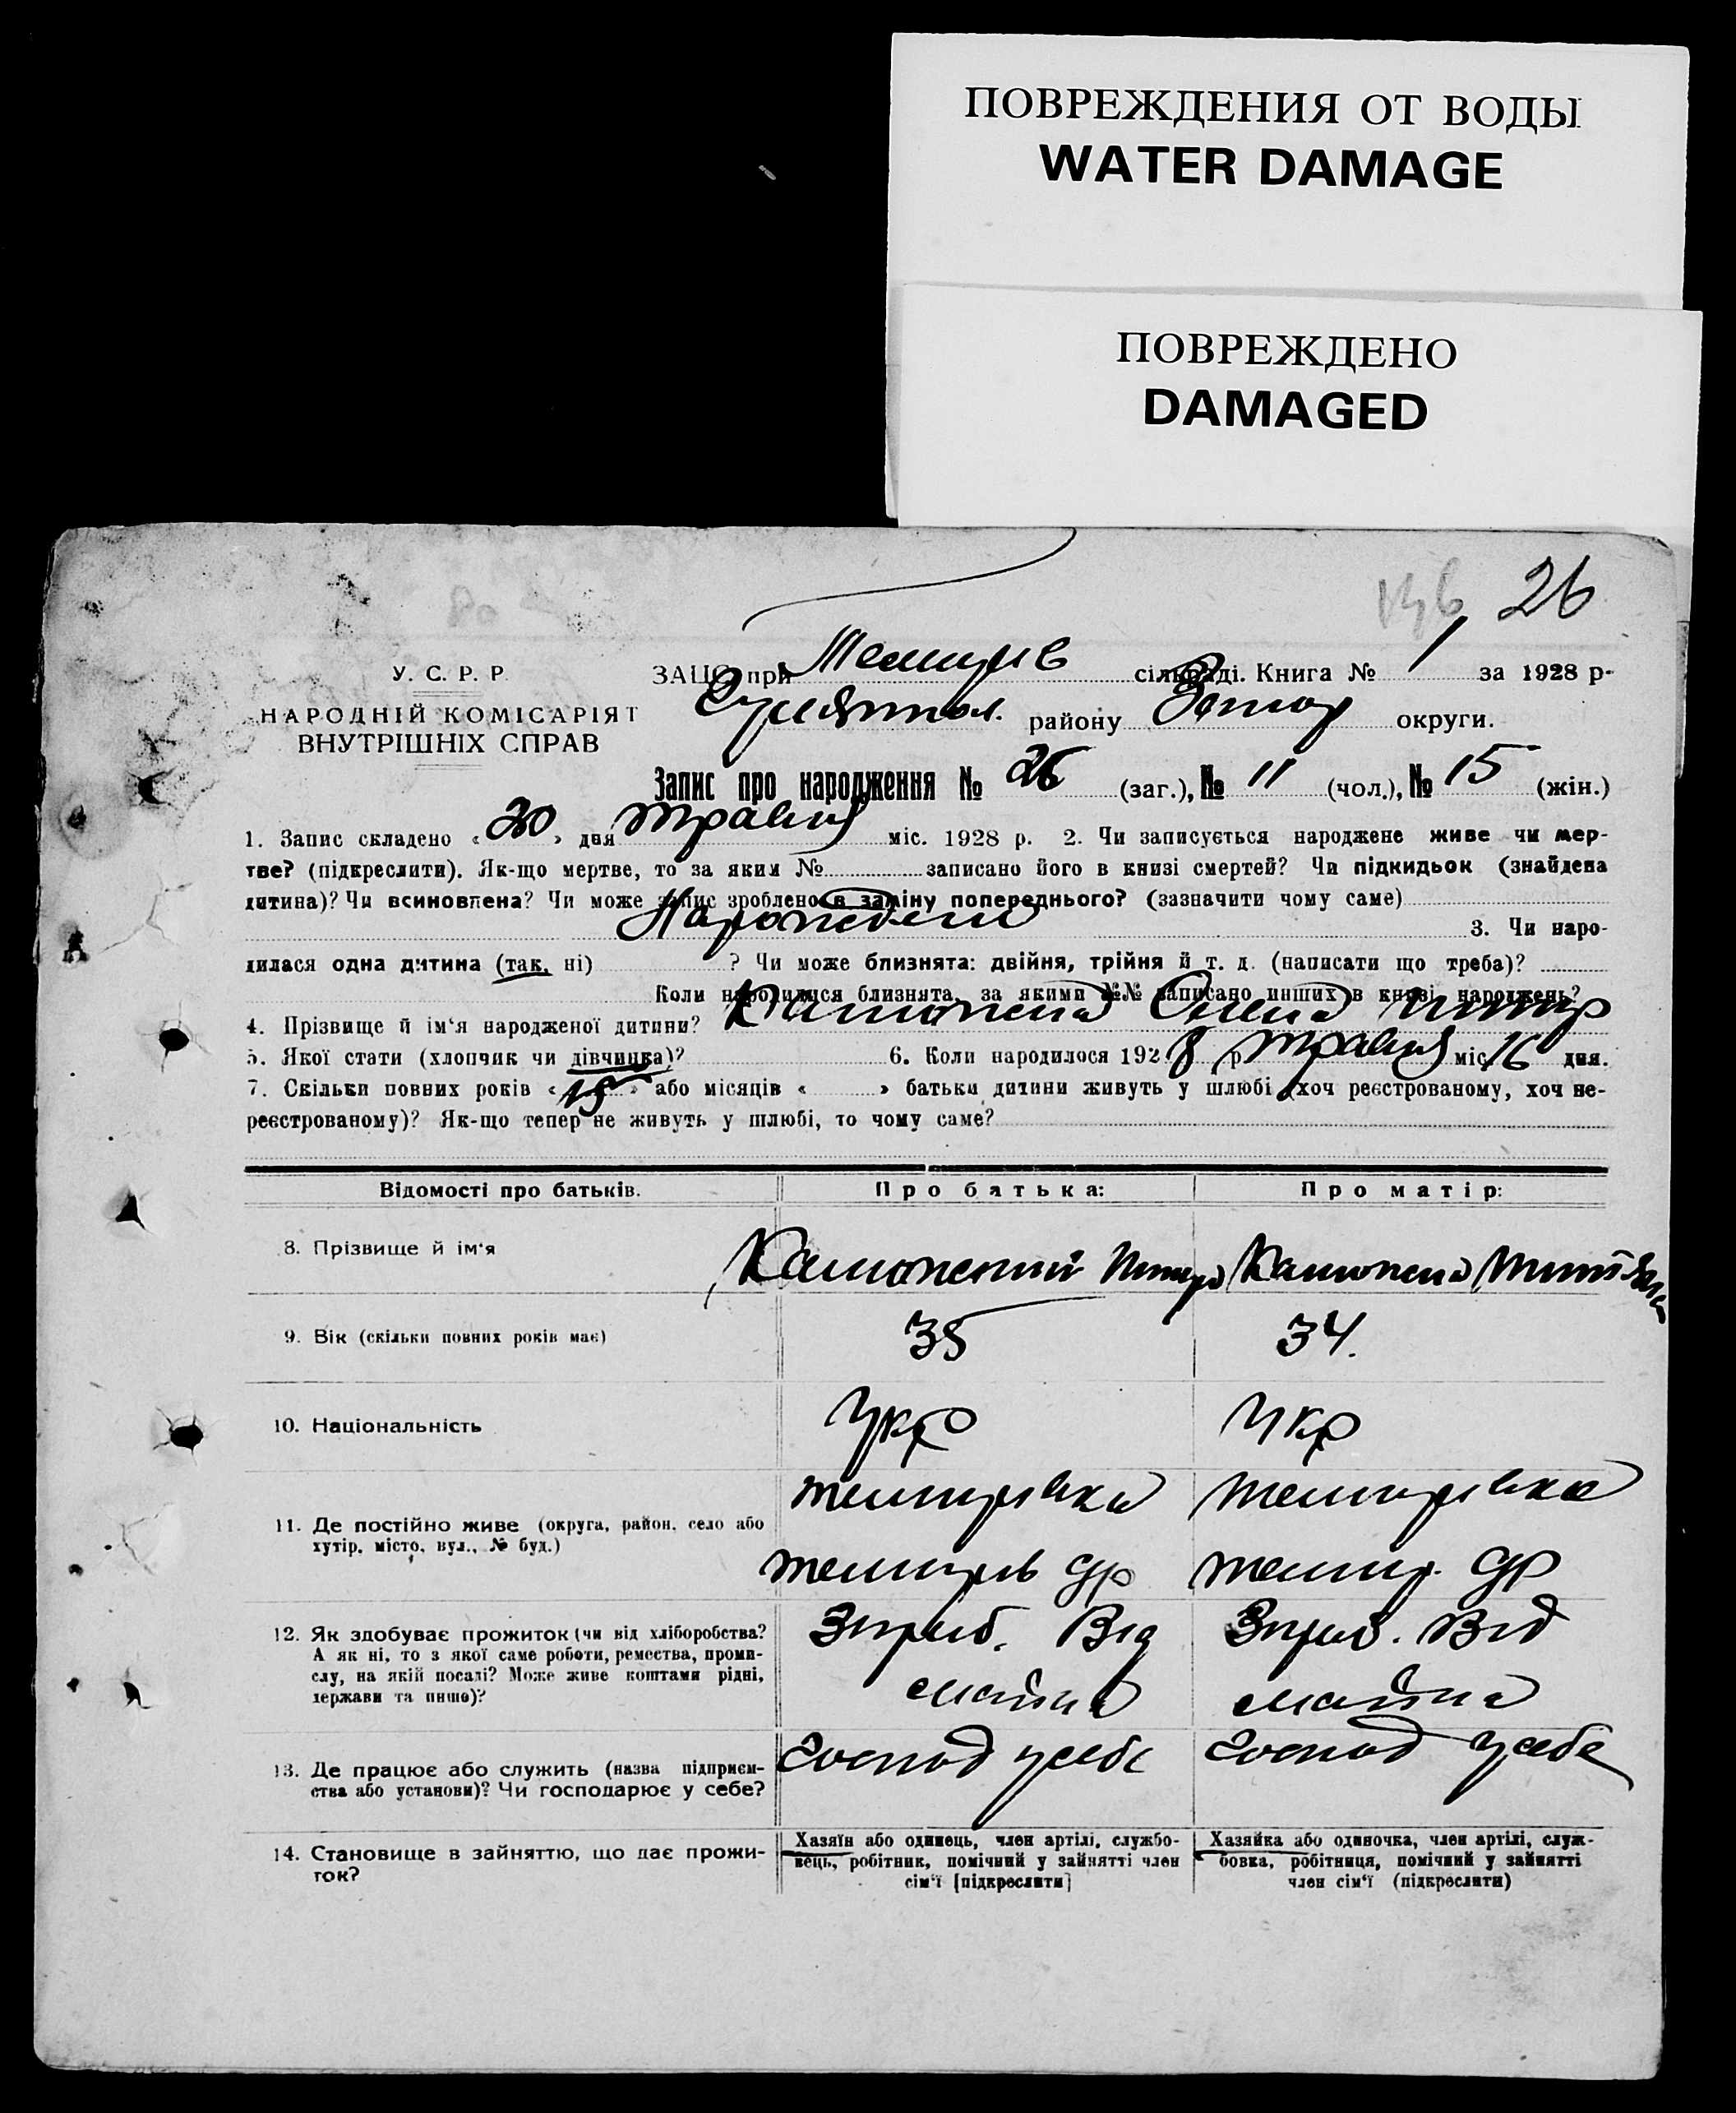 ПОВРЕЖДЕНИЯ ОТ ВОДЫ
WATER DAMAGE
ПОВРЕЖДЕНО
DAMAGED
26
У. С. Р. Р.
НАРОДНІЙ КОМІСАРІЯТ
ВНУТРІШНІХ СПРАВ
ЗАЦС при Темирів сільраді. Книга № 1 за 1928 р.
району округи.
Запис про народження № 26 (заг.), № 11 (чол.), № 15 (жін.)
1. Запис складено «30» дня травня міс. 1928 р. 2. Чи записується народжене живе чи мер-
тве? (підкреслити). Як-що мертве, то за яким № записано його в книзі смертей? Чи підкидьок (знайдена
дитина)? Чи всиновлена? Чи може запис зроблено в заміну попереднього? (зазначити чому саме)
3. Чи наро-
дилася одна дитина (так, ні) ? Чи може близнята: двійня, трійня й т. д. (написати що треба)?
Коли народилися близнята, за якими №№ записано инших в книзі народжень?
4. Прізвище й ім‘я народженої дитини? Олена
5. Якої стати (хлопчик чи дівчинка)? 6. Коли народилося 1928 р травня міс 16 дня.
7. Скільки повних років «15» або місяців « » батьки дитини живуть у шлюбі (хоч реєстрованому, хоч не-
реєстрованому)? Як-що тепер не живуть у шлюбі, то чому саме?
Відомості про батьків. Про батька: Про матір:
8. Прізвище й ім‘я
9. Вік (скільки повних років має) 35 34.
10. Національність Укр Укр
11. Де постійно живе (округа, район, село або Темирівка Темирівка
хутір, місто, вул., № буд.)
Темирів Темир.
12. Як здобуває прожиток (чи від хліборобства? Від Від
А як ні, то з якої саме роботи, ремества, проми-
слу, на якій посаді? Може живе коштами рідні, майна майна
держави та инше)?
13. Де працює або служить (назва підприєм- Господ у себе Господ у себе
ства або установи)? Чи господарює у себе?
14. Становище в зайняттю, що дає прожи-
ток?
Хазяїн або одинець, член артілі, службо-
вець, робітник, помічний у зайнятті член
сім‘ї [підкреслити]
Хазяйка або одиночка, член артілі, служ-
бовка, робітниця, помічний у зайнятті
член сім‘ї (підкреслити)